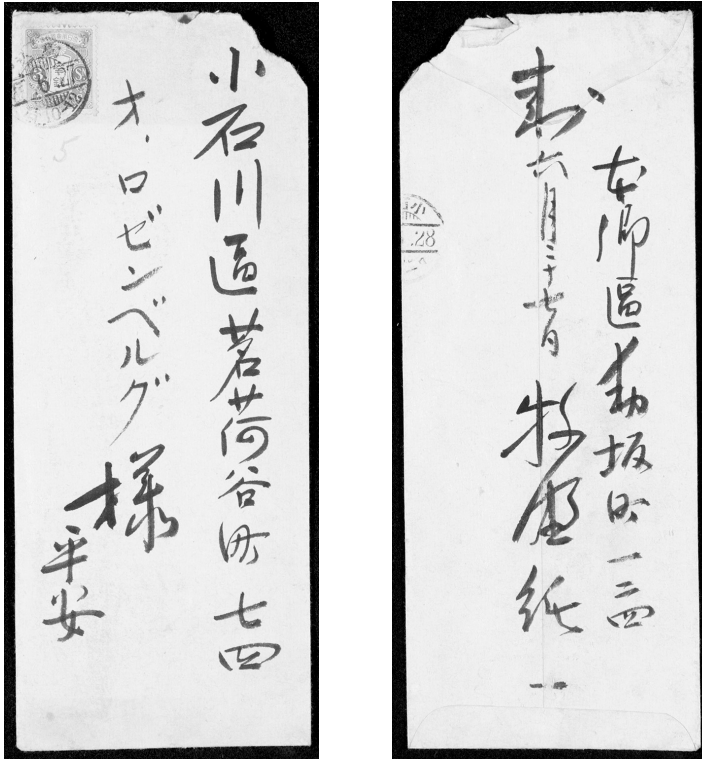 小石川區茗荷谷町七四
オ、ロゼンベルグ
様
平安
本郷區動坂町一二四
封六月二十七日
牧野紙一
28